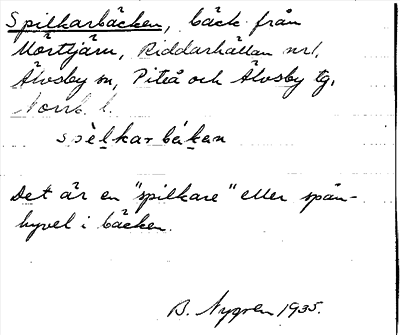 Spilkarbäcken, bäck från
Mörttjärn, Riddarhällan nr 1,
Älvsby sn, Piteå och Älvsby tg,
Norrb. l.
spèlkarbäkan
Det är en "spilkare" eller spån-
hyvel i bäcken.
B. Nygren 1935.